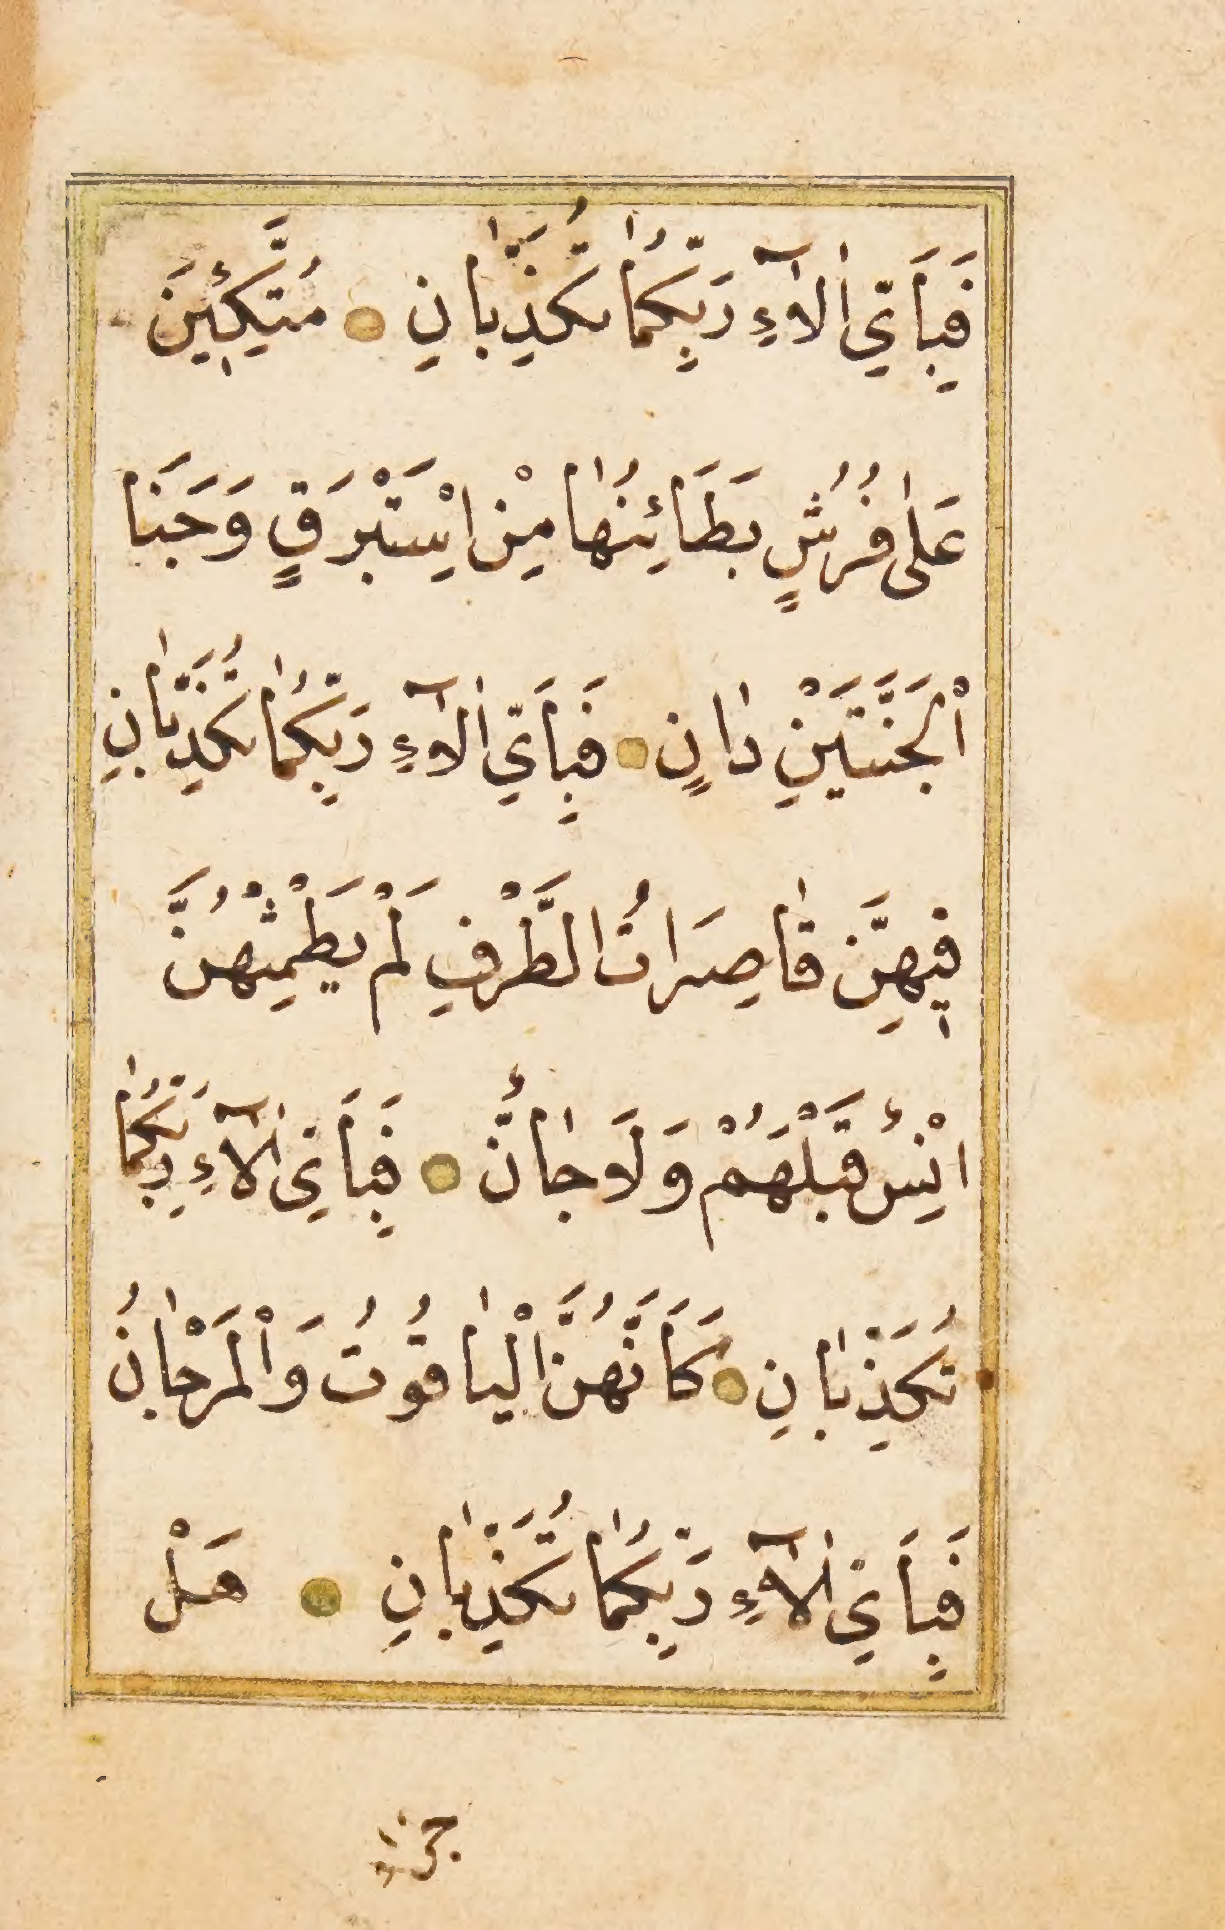 فَبِاَيِّ اٰلَآءِ رَبِّكُمٰا تُكَذِّبٰانِ ۝ مُتَّكِـٖٔينَ
عَلٰى فُرُشٍ بَطَائِنُهٰا مِنْ اِسْتَبْرَقٍ وَجَنَا
اْلجَنَّتَيْنِ دٰانٍ ۝ فَبِاَيِّ اٰلَآءِ رَبِّكُمٰا تُكَذِّبٰانِ
فٖيهِنَّ قٰاصِرَاتُ الطَّرْفِ لَمْ يَطْمِثْهُنَّ
اِنْسٌ قَبْلَهُمْ وَلَا جٰانٌّ ۝ فَبِاَيِّ اٰلَآءِ رَبِّكُمٰا
تُكَذِّبٰانِ ۝ كَاَنَّهُنَّ الْيٰاقُوتُ وَاْلمَرْجٰانُ
فَبِاَيِّ اٰلَآءِ رَبِّكُمٰا تُكَذِّبٰانِ ۝ هَلْ
جزاء